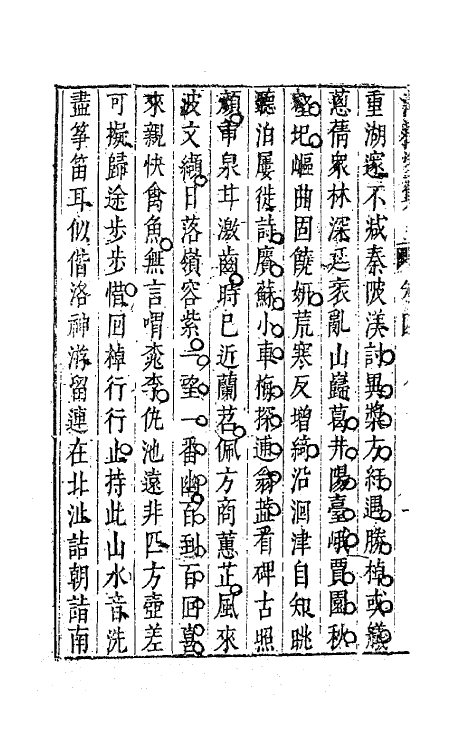 重湖邃不减秦陂渼討異槳方紆遇勝棹或艤
蔥蒨衆林深延袤亂山巋葛井陽臺峨賈園秋
壑圯嶇曲固饒妍荒寒反增綺沿洄津自知眺
聽泊屢徙詩廣蘇小車梅探逋翁藍看碑古照
顏甫泉茸漱齒時已近蘭苕佩方商蕙芷風來
波文纈日落嶺容紫一望一番幽百到百回喜
來親快禽魚無言喟桃李仇池遠非匹方壺差
可擬歸途步步惜回棹行行止持此山水音洗
盡筝笛耳似偕洛神游留連在北沚詰朝詣南